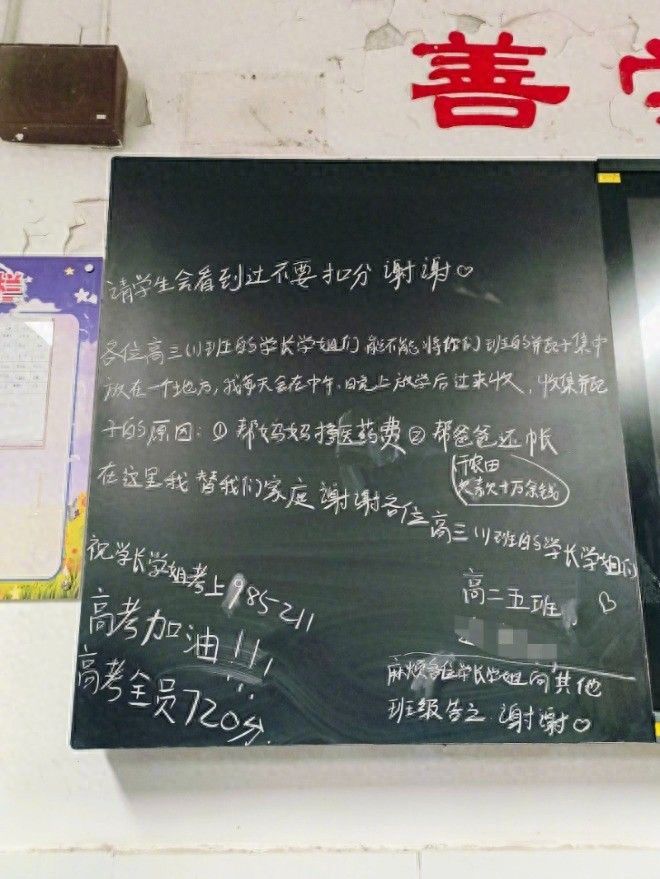 善
栏
请学生会看到过不要扣分 谢谢♡
各位高三(1)班的学长学姐们 能不能将你们班的并瓦子集中
放在一个地方,我每天会在中午、晚上放学后过来收,收集并瓦
子的原因:① 帮妈妈挣医药费 ② 帮爸爸还帐
欠款几十万余钱
在这里我替我们家庭 谢谢各位高三(1)班的学长学姐们
祝学长学姐考上985 211
高二五班
♡
高考加油!!!
高考全员720分
麻烦各位学长学姐向其他
班级告之 谢谢♡